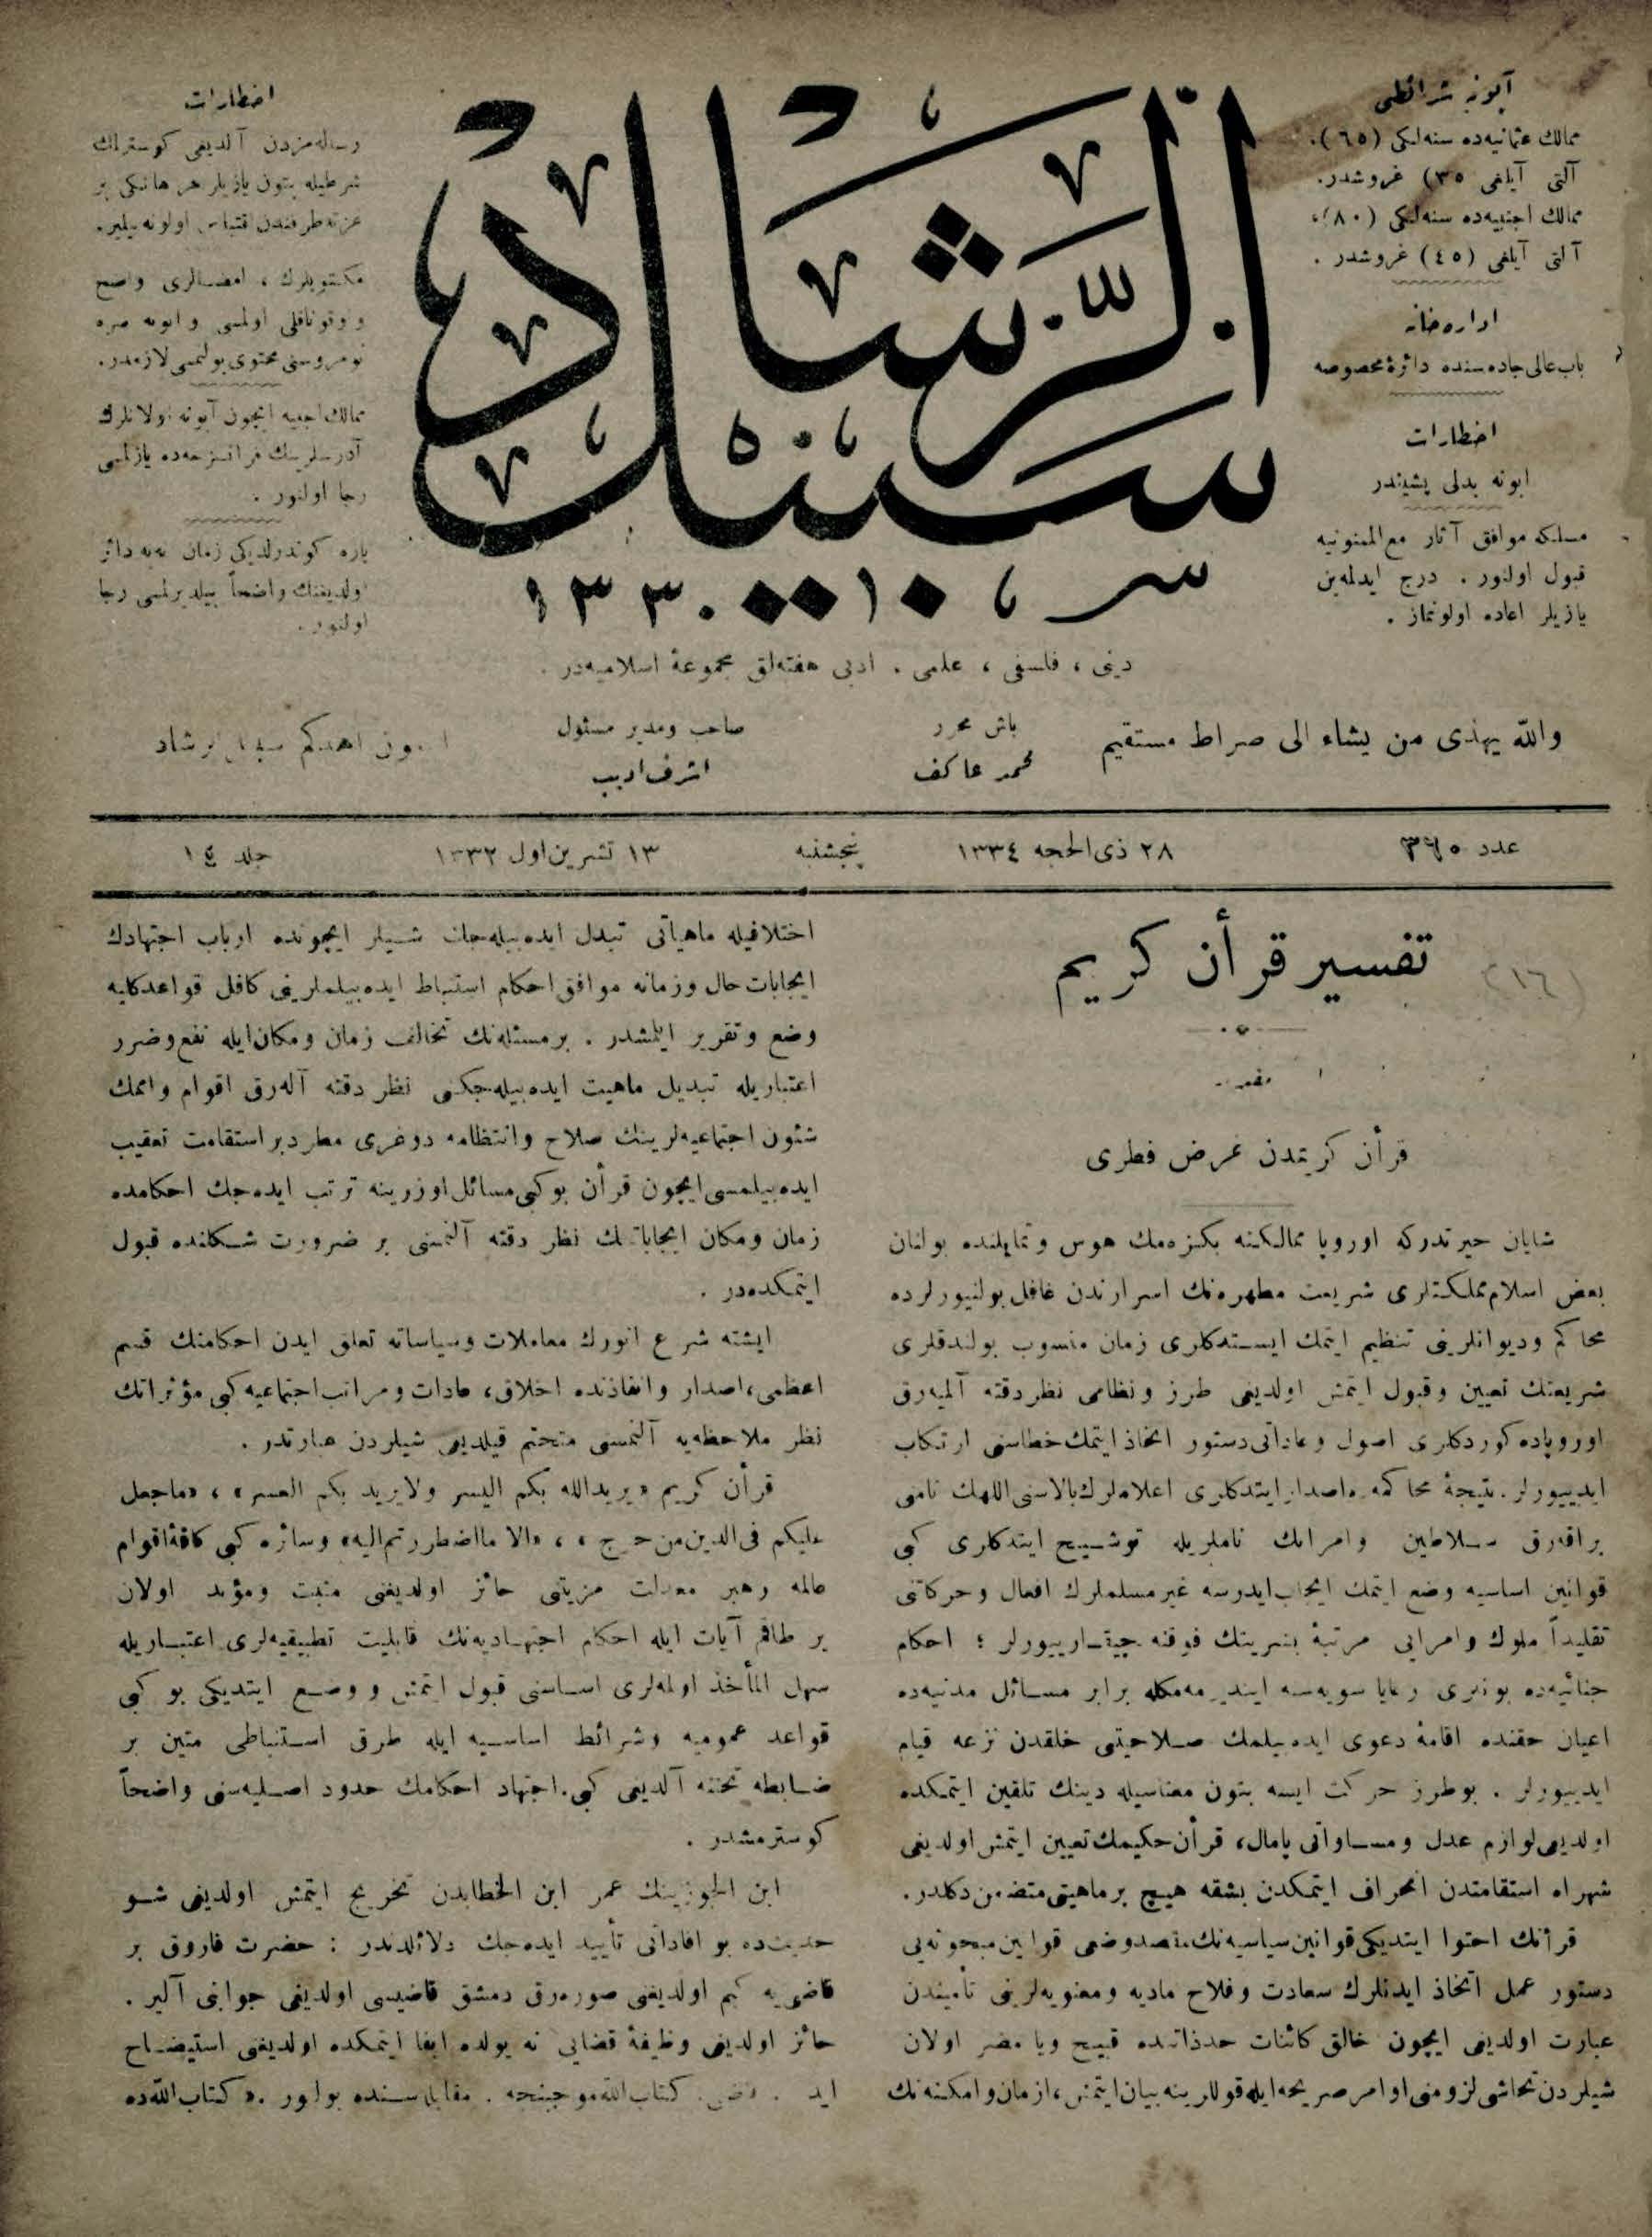 آبونه شرائطی
ممالك عثمانیه‌ده سنه‌لكی (٦٥)،
آلتی آیلغی (٣٥) غروشدر.
ممالك اجنبیه‌ده سنه‌لكی (٨٠)،
آلتی آیلغی (٤٥) غروشدر .
اداره‌خانه
باب عالی جاده‌سنده دائرۀ مخصوصه
اخطارات
ابونه بدلی پشیندر
مسلكه موافق آثار مع الممنونیه
قبول اولنور . درج ایدلمه‌ین
یازیلر اعاده اولونماز .
سبیل الرشاد
سر ١٠ ١٣٣٠
دینی ، فلسفی ، علمی ، ادبی هفته‌لق مجموعۀ اسلامیه‌در .
اخطارات
رساله‌مزدن آلدیغی كوستراك
شرطیله بتون یازیلر هر هانكی بر
غزته طرفندن اقتباس اولونه بیلیر.
مكتوبلرك ، امضالری واضح
و اوقوناقلی اولمسی و ابونه صره
نومروسنی محتوی بولنمسی لازمدر.
ممالك اجنبیه ایچون آبونه اولانلرك
آدرسلرینك فرانسزجه‌ده یازلمسی
رجا اولنور .
پاره كوندرلدیكی زمان نه‌یه دائر
اولدیغنك واضحاً بیلدیرلمسی رجا
اولنور.
والله یهدی من یشاء الی صراط مستقیم
باش محرر
محمد عاكف
صاحب ومدیر مسئول
اشرف ادیب
اهدكم سبیل الرشاد
عدد ٣٦٠
٢٨ ذی الحجه ١٣٣٤
پنجشنبه
١٣ تشرین اول ١٣٣٢
جلد ١٤
تفسیر قرأن كریم
(١٦)
قرأن كریمدن غرض فطری
شایان حیرتدركه اوروپا ممالكنه بكزه‌مك هوس و تمایلنده بولنان
بعض اسلام مملكتلری شریعت مطهره‌نك اسرارندن غافل بولنیورلرده
محاكم ودیوانلرینی تنظیم ایتمك ایستدكلری زمان منسوب بولندقلری
شریعتك تعیین وقبول ایتمش اولدیغی طرز ونظامی نظر دقته آلمیه‌رق
اوروپاده كوردكلری اصول وعاداتی دستور اتخاذ ایتمك خطاسنی ارتكاب
ایدییورلر. نتیجۀ محاكمه‌ده اصدار ایتدكلری اعلاملرك بالاسنی اللهك نامی
براقه‌رق سلاطین وامرانك ناملریله توشیح ایتدكلری كبی
قوانین اساسیه وضع ایتمك ایجاب ایدرسه غیر مسلملرك افعال وحركاتنی
تقلیداً ملوك وامرایی مرتبۀ بشریتك فوقنه چیقاریيورلر ؛ احكام
جنائیه‌ده بونلری رعایا سویه‌سه ایندیرمه‌مكله برابر مسائل مدنیه‌ده
اعیان حقنده اقامۀ دعوی ایده‌بیلمك صلاحیتی خلقدن نزعه قیام
ایدییورلر . بوطرز حركت ایسه بتون معناسیله دینك تلقین ایتمكده
اولدیغی لوازم عدل ومساواتی پامال، قرأن حكیمك تعیین ایتمش اولدیغی
شهراه استقامتدن انحراف ایتمكدن بشقه هیچ بر ماهیتی متضمن دكلدر.
قرأنك احتوا ایتدیكی قوانین سیاسیه‌نك مقصد وضعی قوانین مبحوثه‌یی
دستور عمل اتخاذ ایدنلرك سعادت وفلاح مادیه ومعنویه‌لرینی تأمیندن
عبارت اولدیغی ایچون خالق كائنات حدذاتنده قبیح ویا مضر اولان
شیلردن تحاشی لزومنی اوامر صریحه ایله قوللرینه بیان ایتمش، ازمان وامكنه‌نك
اختلافیله ماهیاتی تبدل ایده‌بیله‌جك شیلر ایچونده ارباب اجتهادك
ایجابات حال وزمانه موافق احكام استنباط ایده‌بیلملرینی كافل قواعد كلیه
وضع وتقریر ایلمشدر . بر مسئله‌نك تخالف زمان ومكان ایله نفع وضرر
اعتباریله تبدیل ماهیت ایده‌بیله‌جكنی نظر دقته آله‌رق اقوام وامَمك
شئون اجتماعیه‌لرینك صلاح وانتظامه دوغری مطرد بر استقامت تعقیب
ایده‌بیلمسی ایچون قرأن بو كبی مسائل اوزرینه ترتب ایده‌جك احكامده
زمان ومكان ایجاباتنك نظر دقته آلنمسنی بر ضرورت شكلنده قبول
ایتمكده‌در .
ایشته شرع انورك معاملات وسیاساته تعلق ایدن احكامنك قسم
اعظمی، اصدار وانفاذنده اخلاق، عادات ومراتب اجتماعیه كبی مؤثراتك
نظر ملاحظه‌یه آلنمسی متحتم قیلدیغی شیلردن عبارتدر .
قرأن كریم «یریدالله بكم الیسر ولا یرید بكم العسر» ، «ماجعل
علیكم فی الدین من حرج» ، «الا ما اضطررتم الیه» وسائره كبی كافۀ اقوام
عالمه رهبر معدلت مزیتی حائز اولدیغنی مثبت ومؤید اولان
بر طاقم آیات ایله احكام اجتهادیه‌نك قابلیت تطبیقیه‌لری اعتباریله
سهل المأخذ اولمه‌لری اساسنی قبول ایتمش و وضع ایتدیكی بو كبی
قواعد عمومیه وشرائط اساسیه ایله طرق استنباطی متین بر
ضابطه تحتنه آلدیغی كبی. اجتهاد احكامك حدود اصلیه‌سنی واضحاً
كوسترمشدر .
ابن الجوزینك عمر ابن الخطابدن تخریج ایتمش اولدیغی شو
حدیث‌ده بو افاداتی تأیید ایده‌جك دلائلدندر : حضرت فاروق بر
قاضی‌یه كیم اولدیغنی صوره‌رق دمشق قاضیسی اولدیغی جوابنی آلیر .
حائز اولدیغی وظیفۀ قضایی نه یولده ایفا ایتمكده اولدیغنی استیضاح
اید . كتاب الله موجبنجه . مقابله‌سنده بولنور . «كتاب الله ده